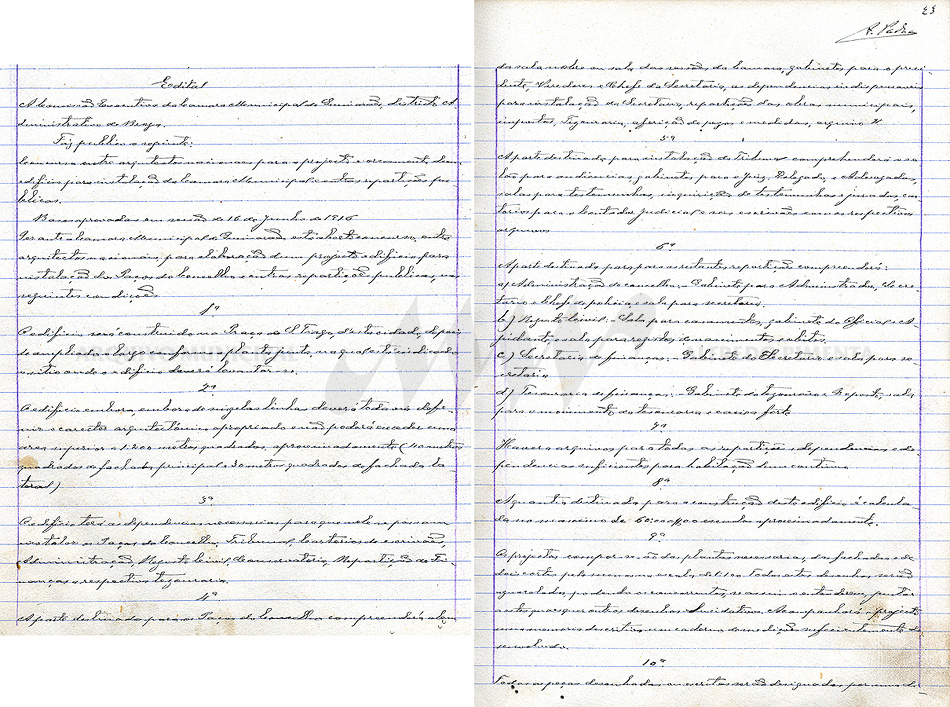 Edital
A Comissão Executiva da Camara Municipal de Guimarães, districto A-
dministrativo de Braga.
Faz publico o seguinte:
Concurso entre arquitectos nacionais para o projecto e orçamento dum
edificio para instalação da Camara Municipal e outras repartições pu-
blicas.
Bases aprovadas em sessão de 16 de Junho de 1916
Perante a Camara Municipal de Guimarães está aberto concurso, entre
arquitectos nacionais, para elaboração dum projecto e edificio para
instalação dos Paços do Concelho e outras repartições publicas, nas
seguintes condições
1ª
O edificio será construido na Praça de S. Tiago, desta cidade, depois
de ampliada. Segue a planta junta, na qual está indicado
o sitio onde o edificio deverá levantar-se.
2ª
O edificio embora, embora de singelas linhas deverá todavia defi-
nir o caracter arquitectónico apropriado e não poderá exceder uma
area superior a 1:200 metros quadrados, aproximadamente (40 metros
quadrados de fachada principal e 30 metros quadrados de fachada la-
teral)
3ª
O edificio terá as dependencias necessarias para que nele se possam
instalar os Paços do Concelho, Tribunal, cartorios de escrivão,
Administração, Registo Civil, Conservatória, Repartição de Fi-
nanças e respectiva tezouraria.
4ª
A parte destinada para os Paços do Concelho compreenderá, alem
23
da sala nobre ou sala das sessões da Camara, gabinetes para o presi-
dente, Vereadores e Chefe da Secretaria, as dependencias indispensaveis
para instalação da Secretaria, repartição das obras municipais,
impostos, Tezouraria, aferição de pezos e medidas, arquivo &
5ª
A parte destinada para instalação do Tribunal comprehenderá sa-
lão para audiencias, gabinetes para o Juiz, Delegado, e Advogados,
salas para testemunhas, inquirição de testemunhas e jurados, car-
torios para o Contador Judicial e seus escrivães com os respectivos
arquivos
6ª
A parte destinada para as restantes repartições compreenderá:
a) Administração do concelho: Gabinete para o Administrador, Secre-
tario e Chefe de policia, sala para secretaria.
b) Registo Civil: Sala para casamentos, gabinete do Oficial e A-
judante, sala para registos de nascimentos e obitos.
c) Secretaria de finanças: Gabinete do Chefe e uma sala para se-
cretaria
d) Tezouraria de finanças: Gabinete do tezoureiro e Proposto, sala
para o movimento da tezouraria e casa forte
7ª
Haverá arquivos para todas as repartições e dependencias e de-
pendencias suficientes para habitação dum continuo
8ª
A quantia destinada para a construção deste edificio é calcula-
da no maximo de 60:000$00 escudos aproximadamente.
9ª
Os projectos compor-se-ão das plantas necessarias, das fachadas e de
dois cortes pelo menos na escala de 1:100. Todos estes desenhos serão
aguarelados, podendo o concorrente, se assim o entender, juntar
a estes quaisquer outros desenhos elucidativos. Acompanhará o projecto
uma memoria descritiva e um caderno de medições suficientemente de-
senvolvido.
10ª
Todas as peças desenhadas ou escritas serão designadas por uma di-